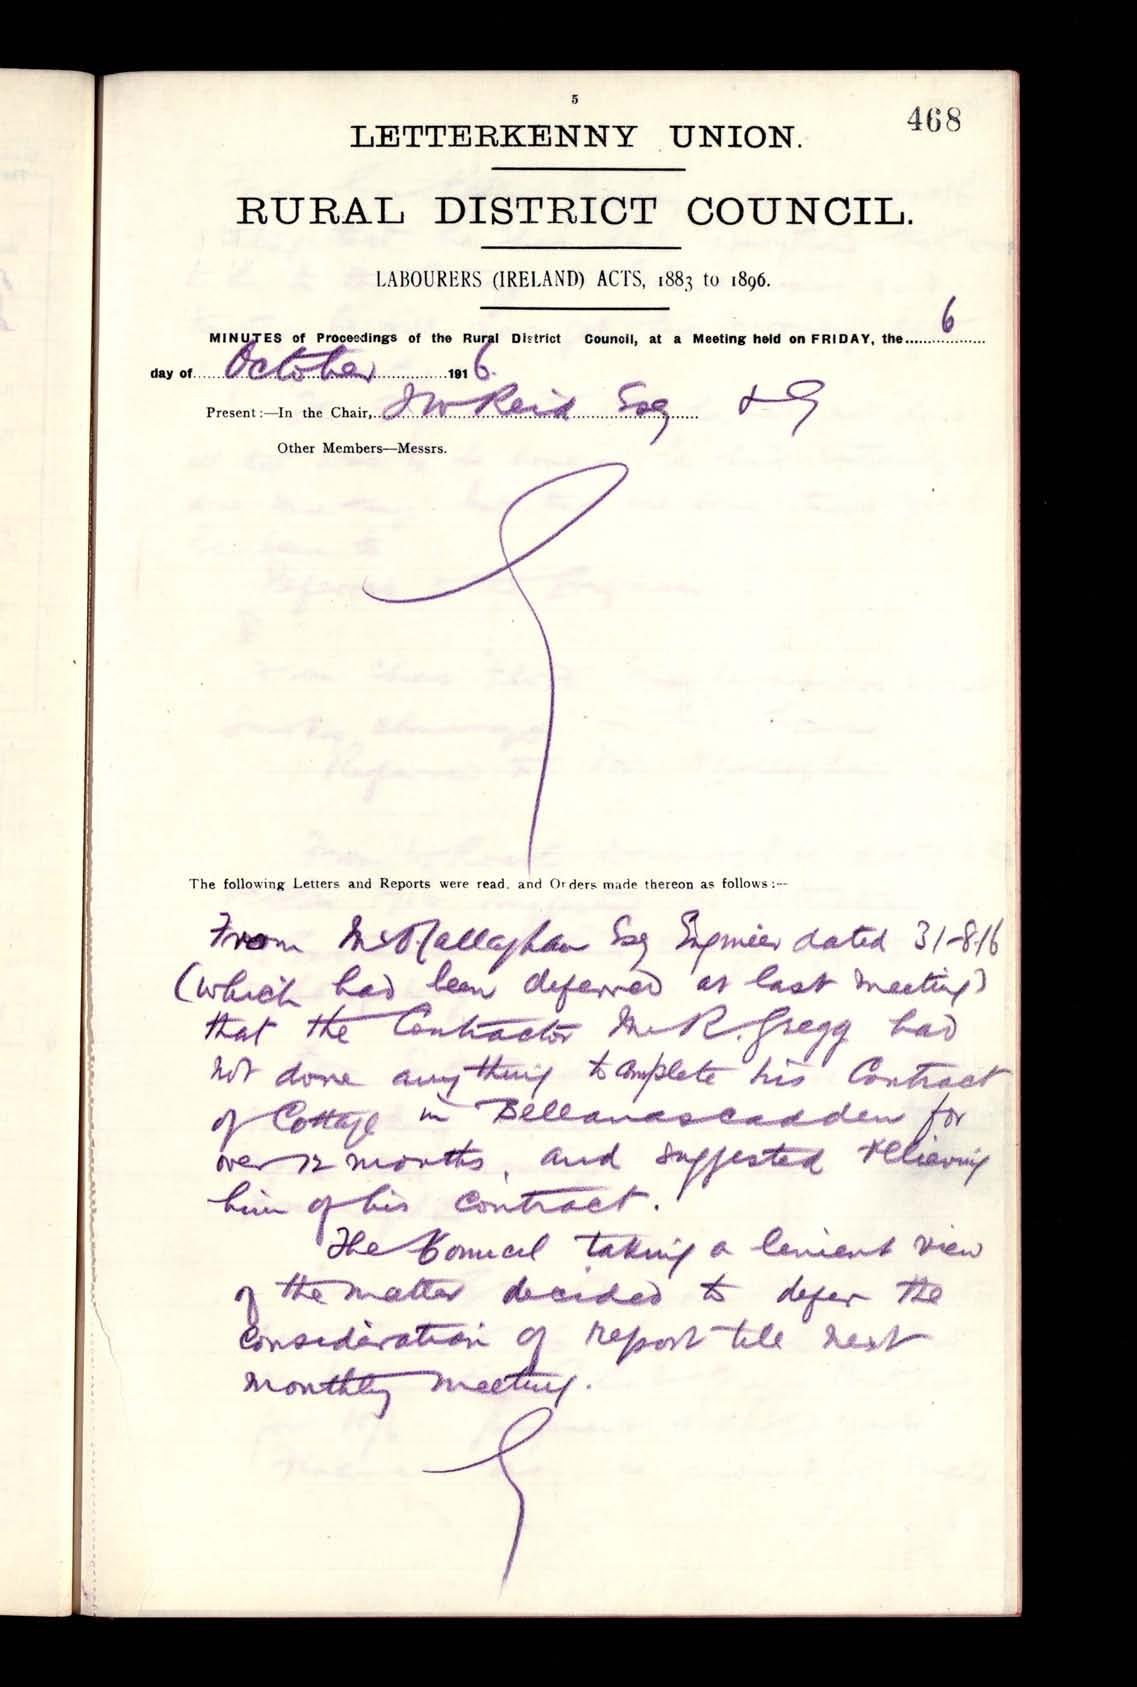 5
468
LETTERKENNY UNION.
RURAL DISTRICT COUNCIL.
LABOURERS (IRELAND) ACTS, 1883 to 1896.
MINUTES of Proceedings of the Rural District Council, at a Meeting held on FRIDAY, the 6
day of October 1916.
Present:—In the Chair, J W Reid Esq
Other Members—Messrs.
The following Letters and Reports were read, and Orders made thereon as follows:—
From Esq Engineer dated 31-8-16
(which had been deferred at last meeting)
that the Contractor Mr R. Gregg had
not done anything to complete his Contract
of Cottage in Bellanascadden for
over 12 months, and suggested relieving
him of his contract.
The Council taking a lenient view
of the matter decided to defer the
consideration of report till next
monthly meeting.